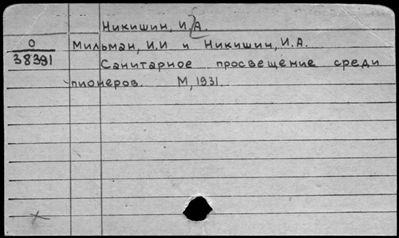 Никишин, И.А.
О Мильман, И.И и Никишин, И.А.
38391 Санитарное просвещение среди
пионеров. М, 1931.